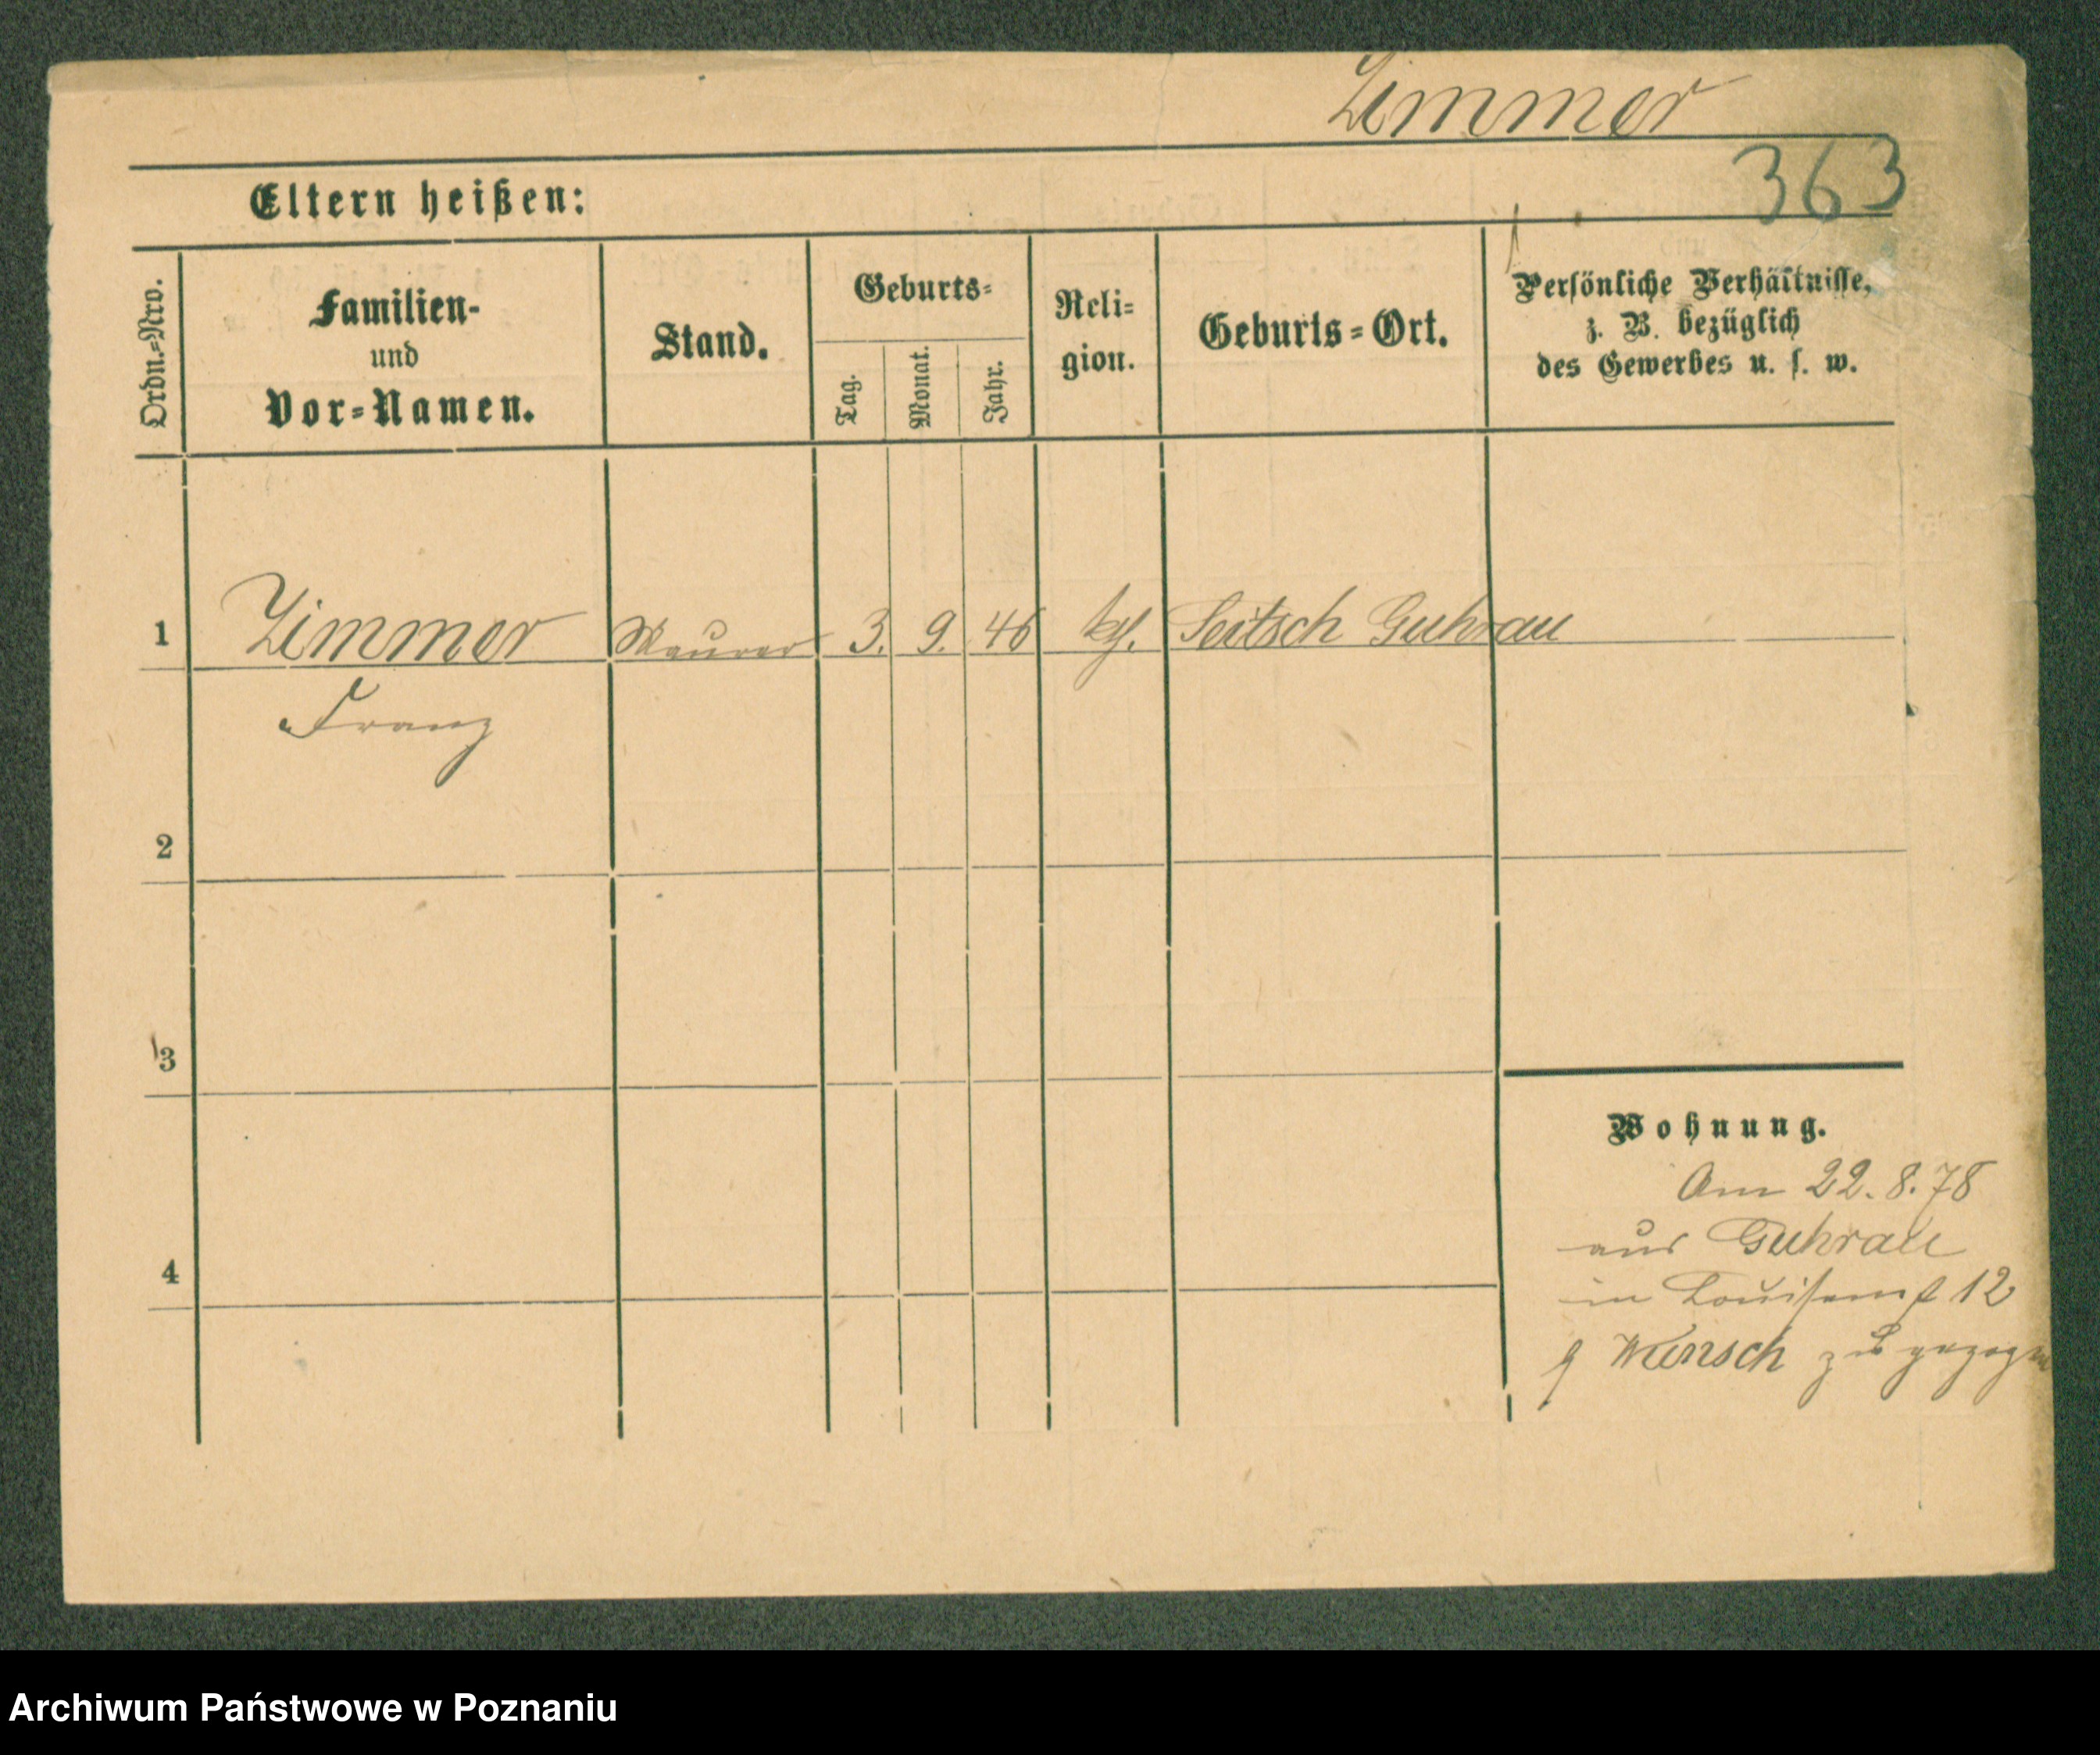 Zimmer
363
Eltern heißen:
Ordn.-Nro.
Familien-
und
Vor-Namen.
Stand.
Geburts-
Tag.
Monat.
Jahr.
Reli-
gion.
Geburts-Ort.
Persönliche Verhältnisse,
z. B. bezüglich
des Gewerbes u. s. w.
1 Zimmer Maurer 3. 9. 46 kg. Seitsch Guhrau
Franz
2
3
4
Wohnung.
Am 22.8.78
aus Guhrau
in Louisenst 12
Wunsch zugezogen
Archiwum Państwowe w Poznaniu